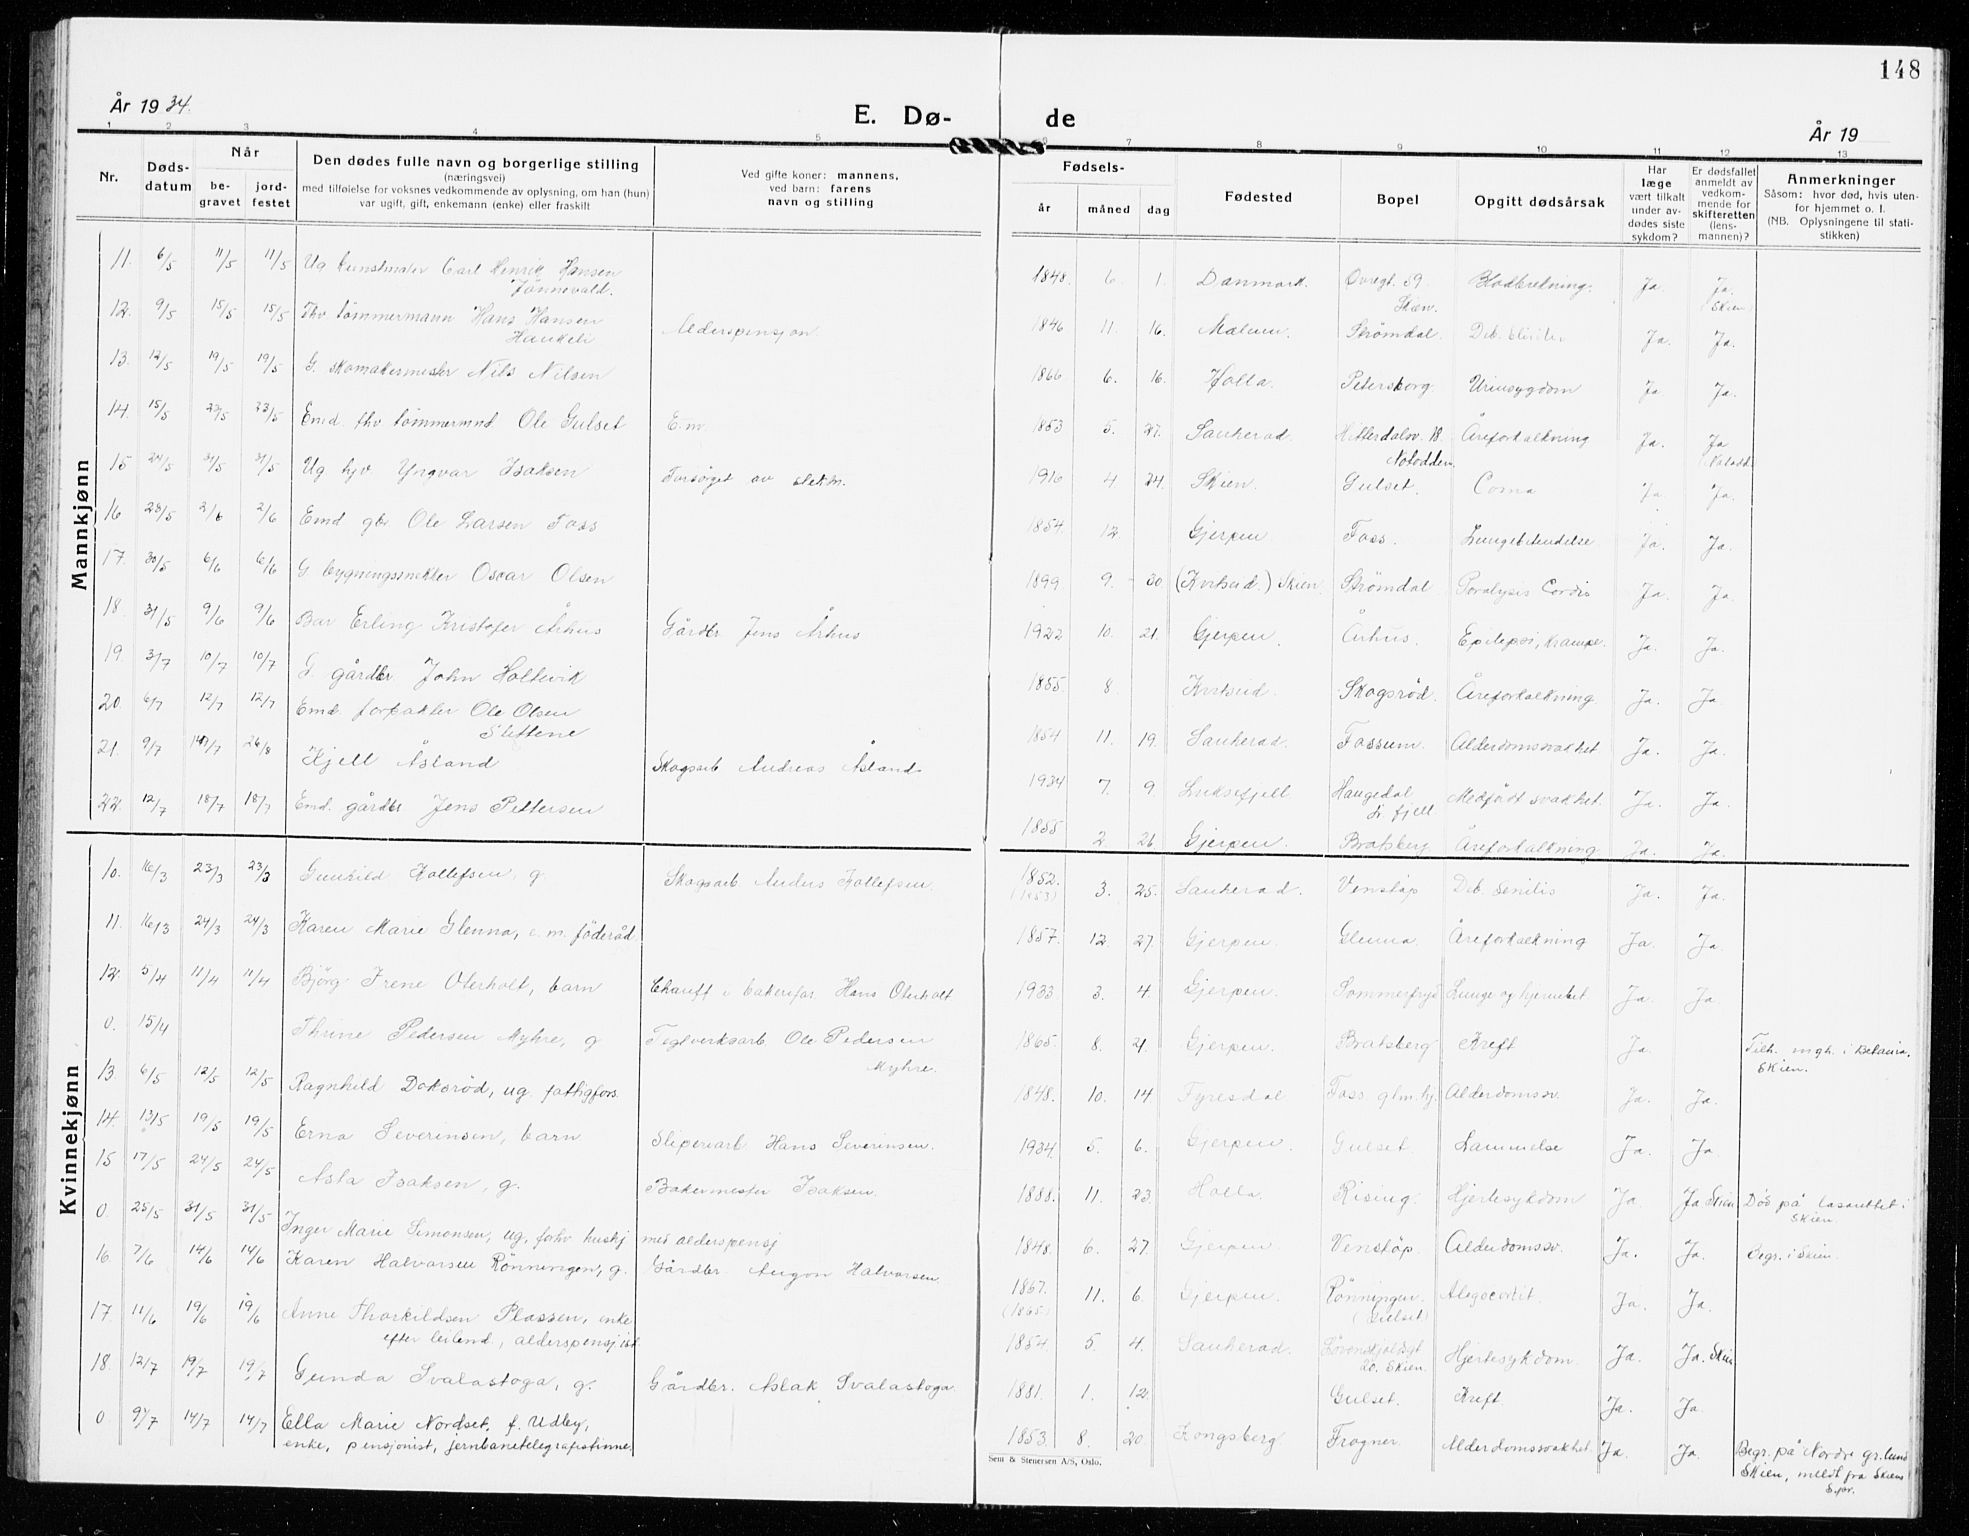 148
År 1934.
E. Dø- de
År 19
1 2 3 4 5 6 7 8 9 10 11 12 13
Nr.
Døds-
datum
Når
be-
gravet
jord-
festet
Den dødes fulle navn og borgerlige stilling
(næringsvei)
med tilføielse for voksnes vedkommende av oplysning, om han (hun)
var ugift, gift, enkemann (enke) eller fraskilt
Ved gifte koner: mannens,
ved barn: farens
navn og stilling
Fødsels-
år måned dag
Fødested
Bopel
Opgitt dødsårsak
Har
læge
vært tilkalt
under av-
dødes siste
sykdom?
Er dødsfallet
anmeldt av
vedkom-
mende for
skifteretten
(lens-
mannen)?
Anmerkninger
Såsom: hvor død, hvis uten-
for hjemmet o. l.
(NB. Oplysningene til stati-
stikken)
Mannkjønn
11. 6/5 11/5 11/5 Ug kunstmaler Carl Henrik Hansen 1848. 6. 1. Danmark. Øvregt. 59. Ja. Ja.
Skien. (Skien)
12. 9/5 15/5 15/5 Fhv tömmermann Hans Hansen Alderspensjon 1846 11. 16. Mælum. Strömdal. Ja. Ja.
Haukeli
13. 12/5 19/5 19/5 G. skomakermester Nils Nilsen 1866 6. 16. Holla. Petersborg. Urinsygdom Ja Ja.
14. 15/5 23/5 23/5 Emd. fhv tömmermnt Ole Gulset E.m. 1853 5. 27. Sauherad. Hitterdalsv. 18. Åreforkalkning Ja. Ja
Notodden.
15 24/5 31/5 31/5 Ug hjv Yngvar Isaksen Forsörget av slektn. 1916 4 24. Skien. Gulset. Coma Ja. Ja.
16 28/5 2/6 2/6 Emd gbr Ole Larsen Foss 1854. 12. Gjerpen Foss. Lungebetendelse Ja. Ja.
17. 30/5 6/6 6/6 G. bygningssnekker Oscar Olsen 1899 9. 30 (Kviteseid.) Skien. Strömdal Paralysis Cordis Ja. Ja.
18. 31/5 9/6 9/6 Bar Erling Kristofer Århus Gårdbr Jens Århus 1922 10. 21. Gjerpen. Århus. Epilepsi, krampe. Ja. Ja.
19. 3/7 10/7 10/7 G. gårdbr. John Holtevik 1855. 8. Kviteseid. Skogsröd. Åreforkalkning Ja. Ja.
20. 6/7 12/7 12/7 Emd. forpakter Ole Olsen 1854 11. 19. Sauherad. Fossum. Alderdomssvakhet Ja. Ja.
Slettene
21. 9/7 26/8 Kjell Åsland Skogsarb Andreas Åsland 1934 7. 9 Luksefjell Haugedal Medfödt svakhet. Ja. Ja.
L. fjell
22. 12/7 18/7 18/7 Emd. gårdbr Jens Pettersen 1855 2 26 Gjerpen. Bratsberg Åreforkalkning Ja. Ja.
Kvinnekjønn
10. 16/3 23/3 23/3 Gunhild Kollefsen, g. Skogsarb Anders Kollefsen. 1852. 3. 25. Sauherad. Venstöp Deb. senilis Ja. Ja.
(1853)
11. 16/3 24/3 24/3 Karen Marie Glenna, e.m. föderåd. 1857. 12. 27. Gjerpen. Glenna. Åreforkalkning Ja. Ja.
12. 5/4 11/4 11/4 Björg Irene Oterholt, barn Chauff i bakerifor. Hans Oterholt 1933 3. 4. Gjerpen. Sommerfryd Ja. Ja
0. 15/4 Thrine Pedersen Myhre, g Teglverksarb Ole Pedersen 1865. 8. 21. Gjerpen. Bratsberg Kreft Ja. Tilh. mgh. i Betania,
Myhre. Skien.
13. 6/5 12/5 12/5 Ragnhild Doksröd, ug. fattigfors. 1848. 10. 14 Fyresdal Foss glm.hj. Alderdomssv. Ja. Ja.
14. 13/5 19/5 19/5 Erna Severinsen, barn Sliperiarb Hans Severinsen. 1934. 5. 6. Gjerpen. Gulset. Lammelse Ja. Ja
15 17/5 24/5 24/5 Asta Isaksen, g. Bakermester Isaksen. 1888. 11. 23. Holla. Rising. Hjertesykdom Ja. Ja Skien Död på lasarettet i
Skien.
0. 25/5 31/5 31/5 Inger Marie Simonsen, ug, forhv hushj med alderspensj 1848. 6. 27. Gjerpen. Venstöp. Alderdomssv. Ja. Ja. Begr. i Skien.
16. 7/6 14/6 14/6 Karen Halvorsen Rönningen, g. Gårdbr. Halvorsen 1867. 11. 6. Gjerpen. Rönningen Ja. Ja.
(1865) (Gulset)
17. 11/6 19/6 19/6 Anne Thorkildsen Plassen, enke 1854. 5. 4. Sauherad. Lövenskjoldsgt Hjertesykdom. Ja. Ja. Skien
efter leilend, alderspensjist 20. Skien.
18. 12/7 19/7 19/7 Gunda Svalastoga, g. Gårdbr. Aslak Svalastoga. 1881. 1. 12 Gulset. Kreft. Ja. Ja.
0. 9/7 14/7 14/7 Ella Marie Nordset, f. Udby, 1853. 8. 20. Kongsberg Frogner. Alderdomssvakhet. Ja. Ja. Begr. på Nordre gr.lund
enke, pensjonist, jernbanetelegrafistinne. Skien, meldt fra Skiens
S.pr.
Sem & Stenersen A/S, Oslo.